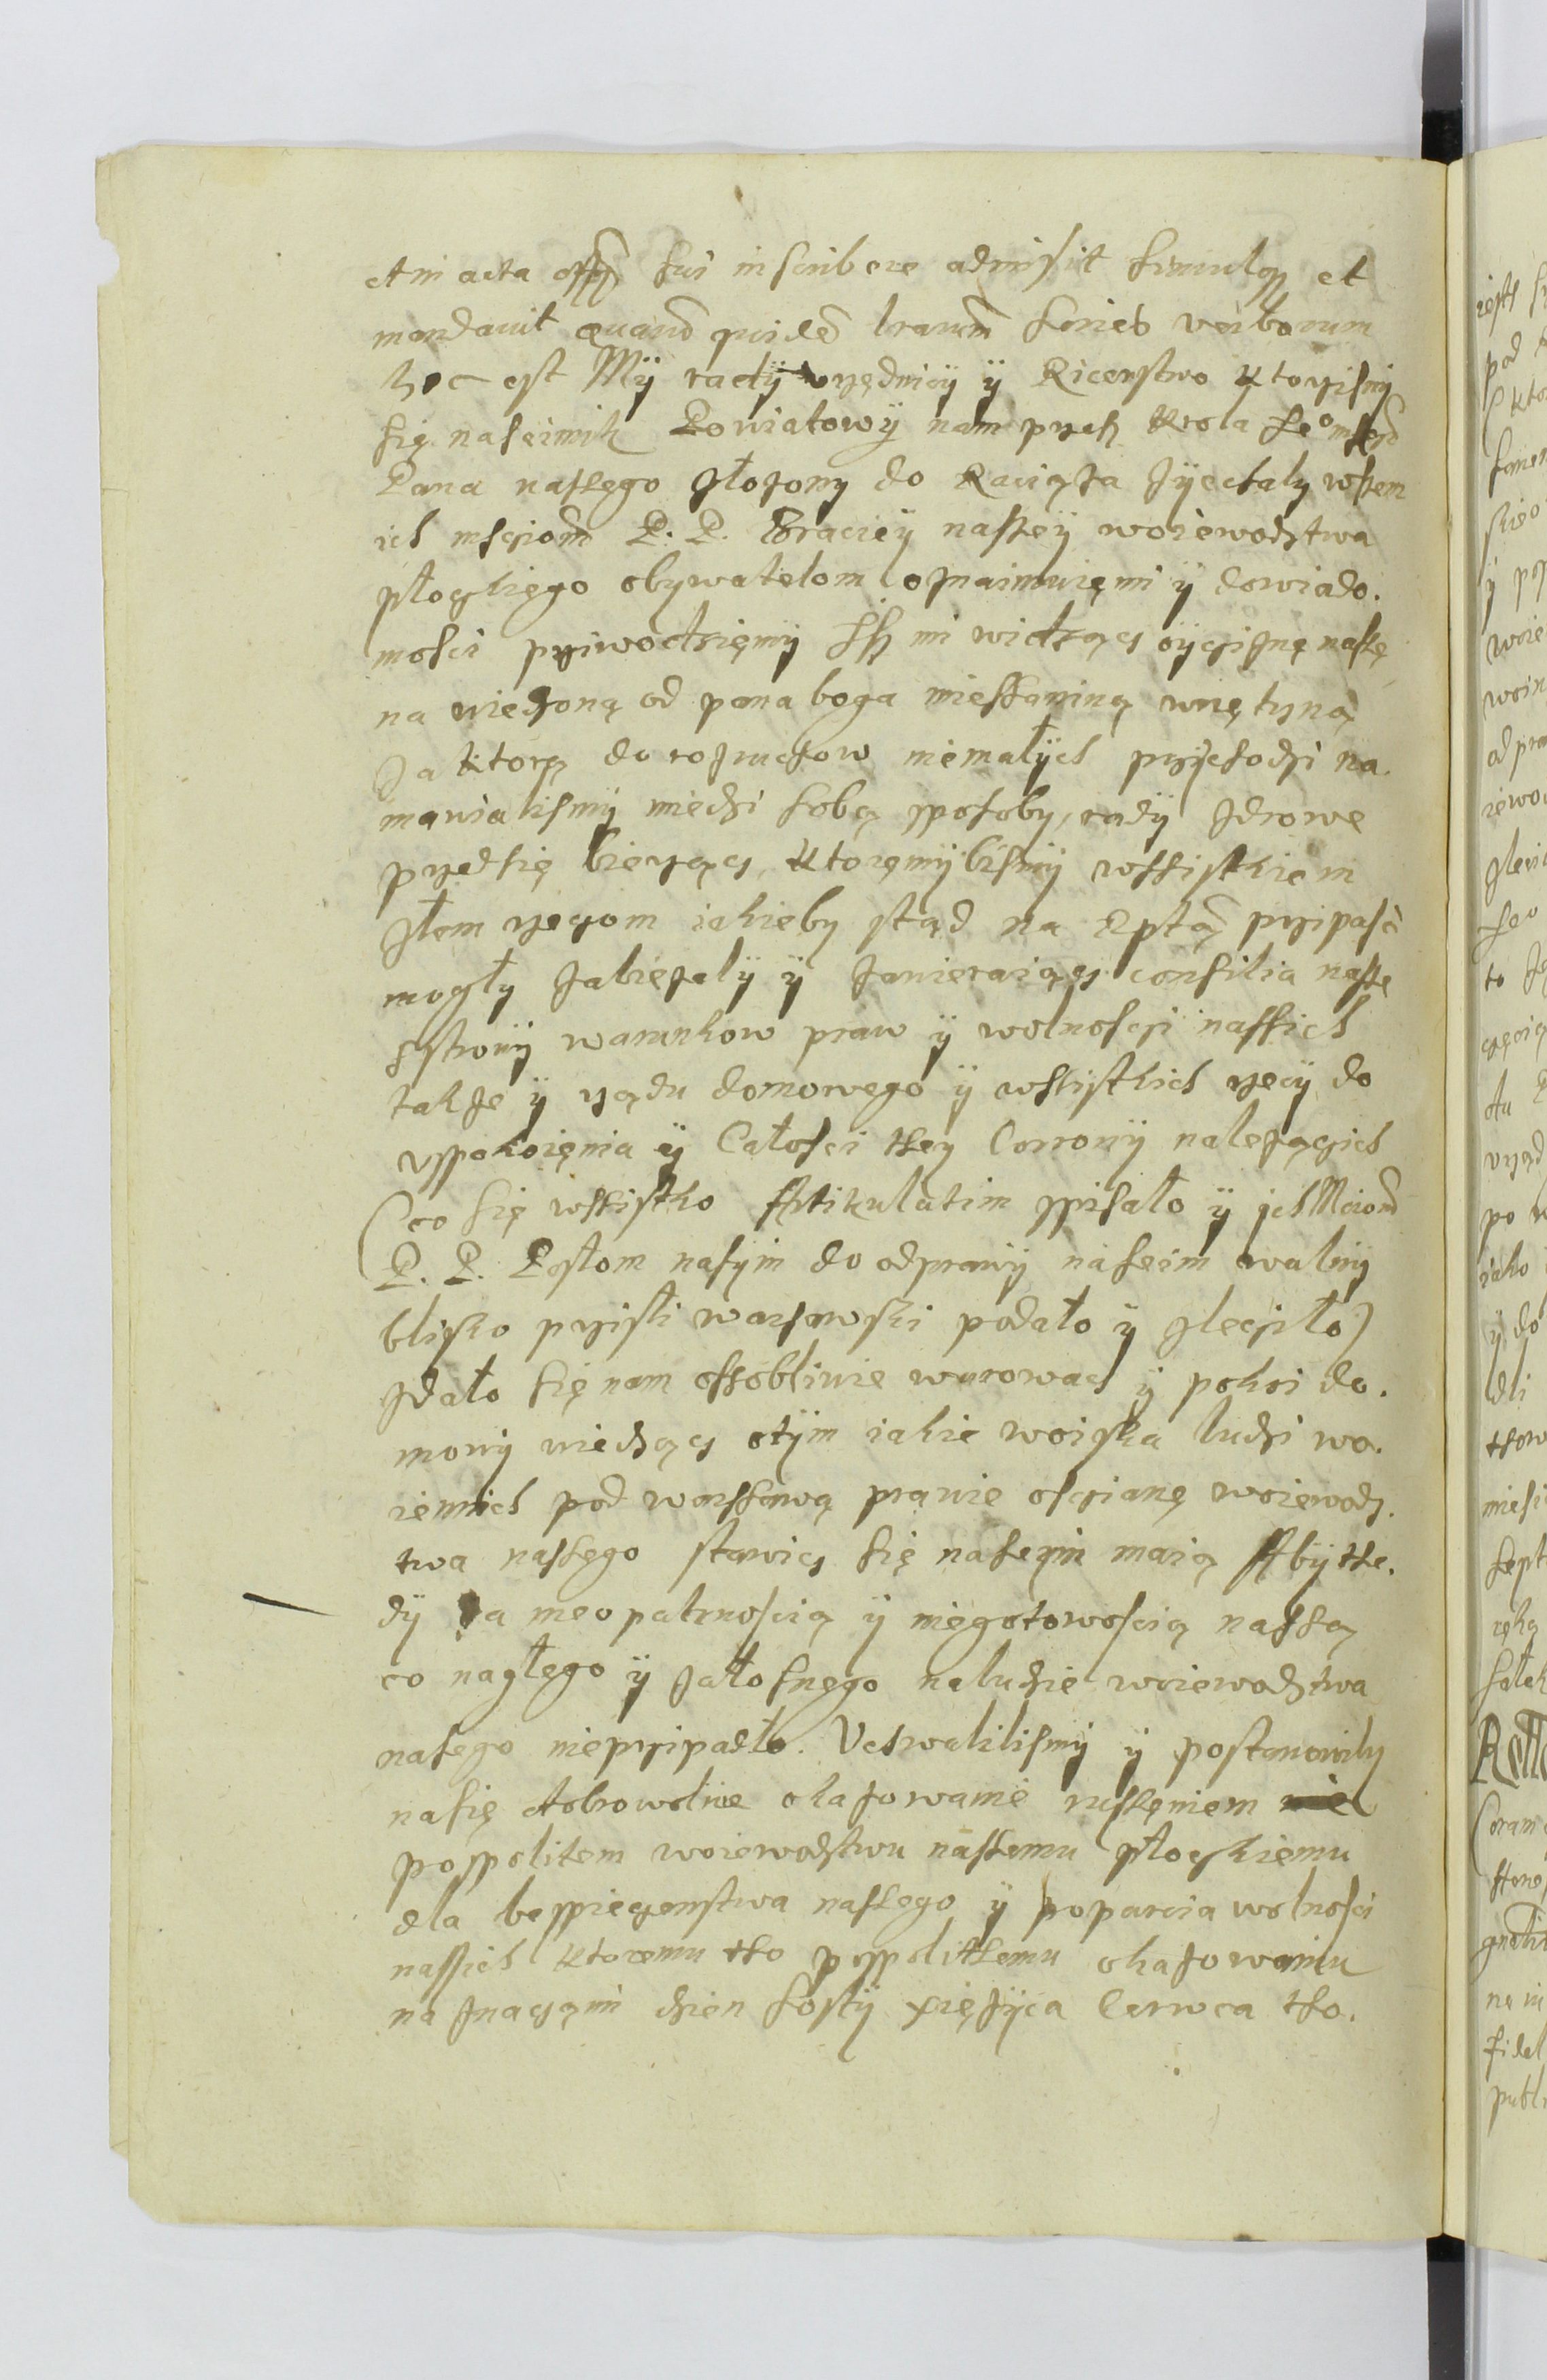 et in acta offi sui inscribere admisit simulq et
mandavit quarũ quidẽ lrarum series verborum
hoc est Mÿ radÿ vrzędnicÿ ÿ Ricerstwo ktorzismÿ
się na seimik Powiatowÿ nam przesz Krola Jeo msczi
Pana naszego złozony do Raciąza zÿechaly wszem
ich msciom P. P. Braciey naszeÿ woiewodztwa
płoczkiego obywatelom oznaimuięmi ÿ dowiado.
mosci prziwodzięmÿ Isz mi widząci oÿczisnę naszę
na wiedzoną od pana boga mieszaniną wnętrzną
za ktorą do rozruchow niemałÿch przÿchodzi na.
mawialismÿ miedzi sobą sposoby, radÿ zdrowe
przedsię bierząci, ktoręmÿ bismÿ wssistkiem
złem rzeczom iakieby stąd na Rptą przipasć
mogły zabiezalÿ ÿ zawieraiąci consilia nasze
sstronÿ warunkow praw ÿ wolnosczi nassich
takze ÿ rządu domowego ÿ wszistkich rzeczÿ do
vspokoięnia ÿ Całosci tey Corronÿ nalezączich
(co się wszistko Artikulatim spisało ÿ ich Mciom
P. P. Posłom naszÿm do odprawÿ na seim walnÿ
blisko przisłi warsawski podało ÿ zlecziło)
zdało się nam ossobliwie warowacz ÿ pokoi do.
mowÿ wiedząci otÿm iakie woiska ludzi wo.
iennich pod warszawą prawie osczianę woiewodz.
twa naszego stawicz się na seÿm maią Abÿ te.
dÿ za nieopatrnoscią ÿ niegotowoscią naszą
co nagłego ÿ załosnęgo na ludzie woiewodztwa
nasego nieprzipadło. Uchwalilismÿ ÿ postanowily
na się dobrowolne okazowanie ruszęniem
pospolitem woiewodztwu naszemu płoczkiemu
dla bespieczenstwa naszego ÿ poparcia wolnosci
nassich ktoremu to pospolittemu okazowaniu
na znaczamÿ dzien szostÿ xięzÿca Cerwca tho.